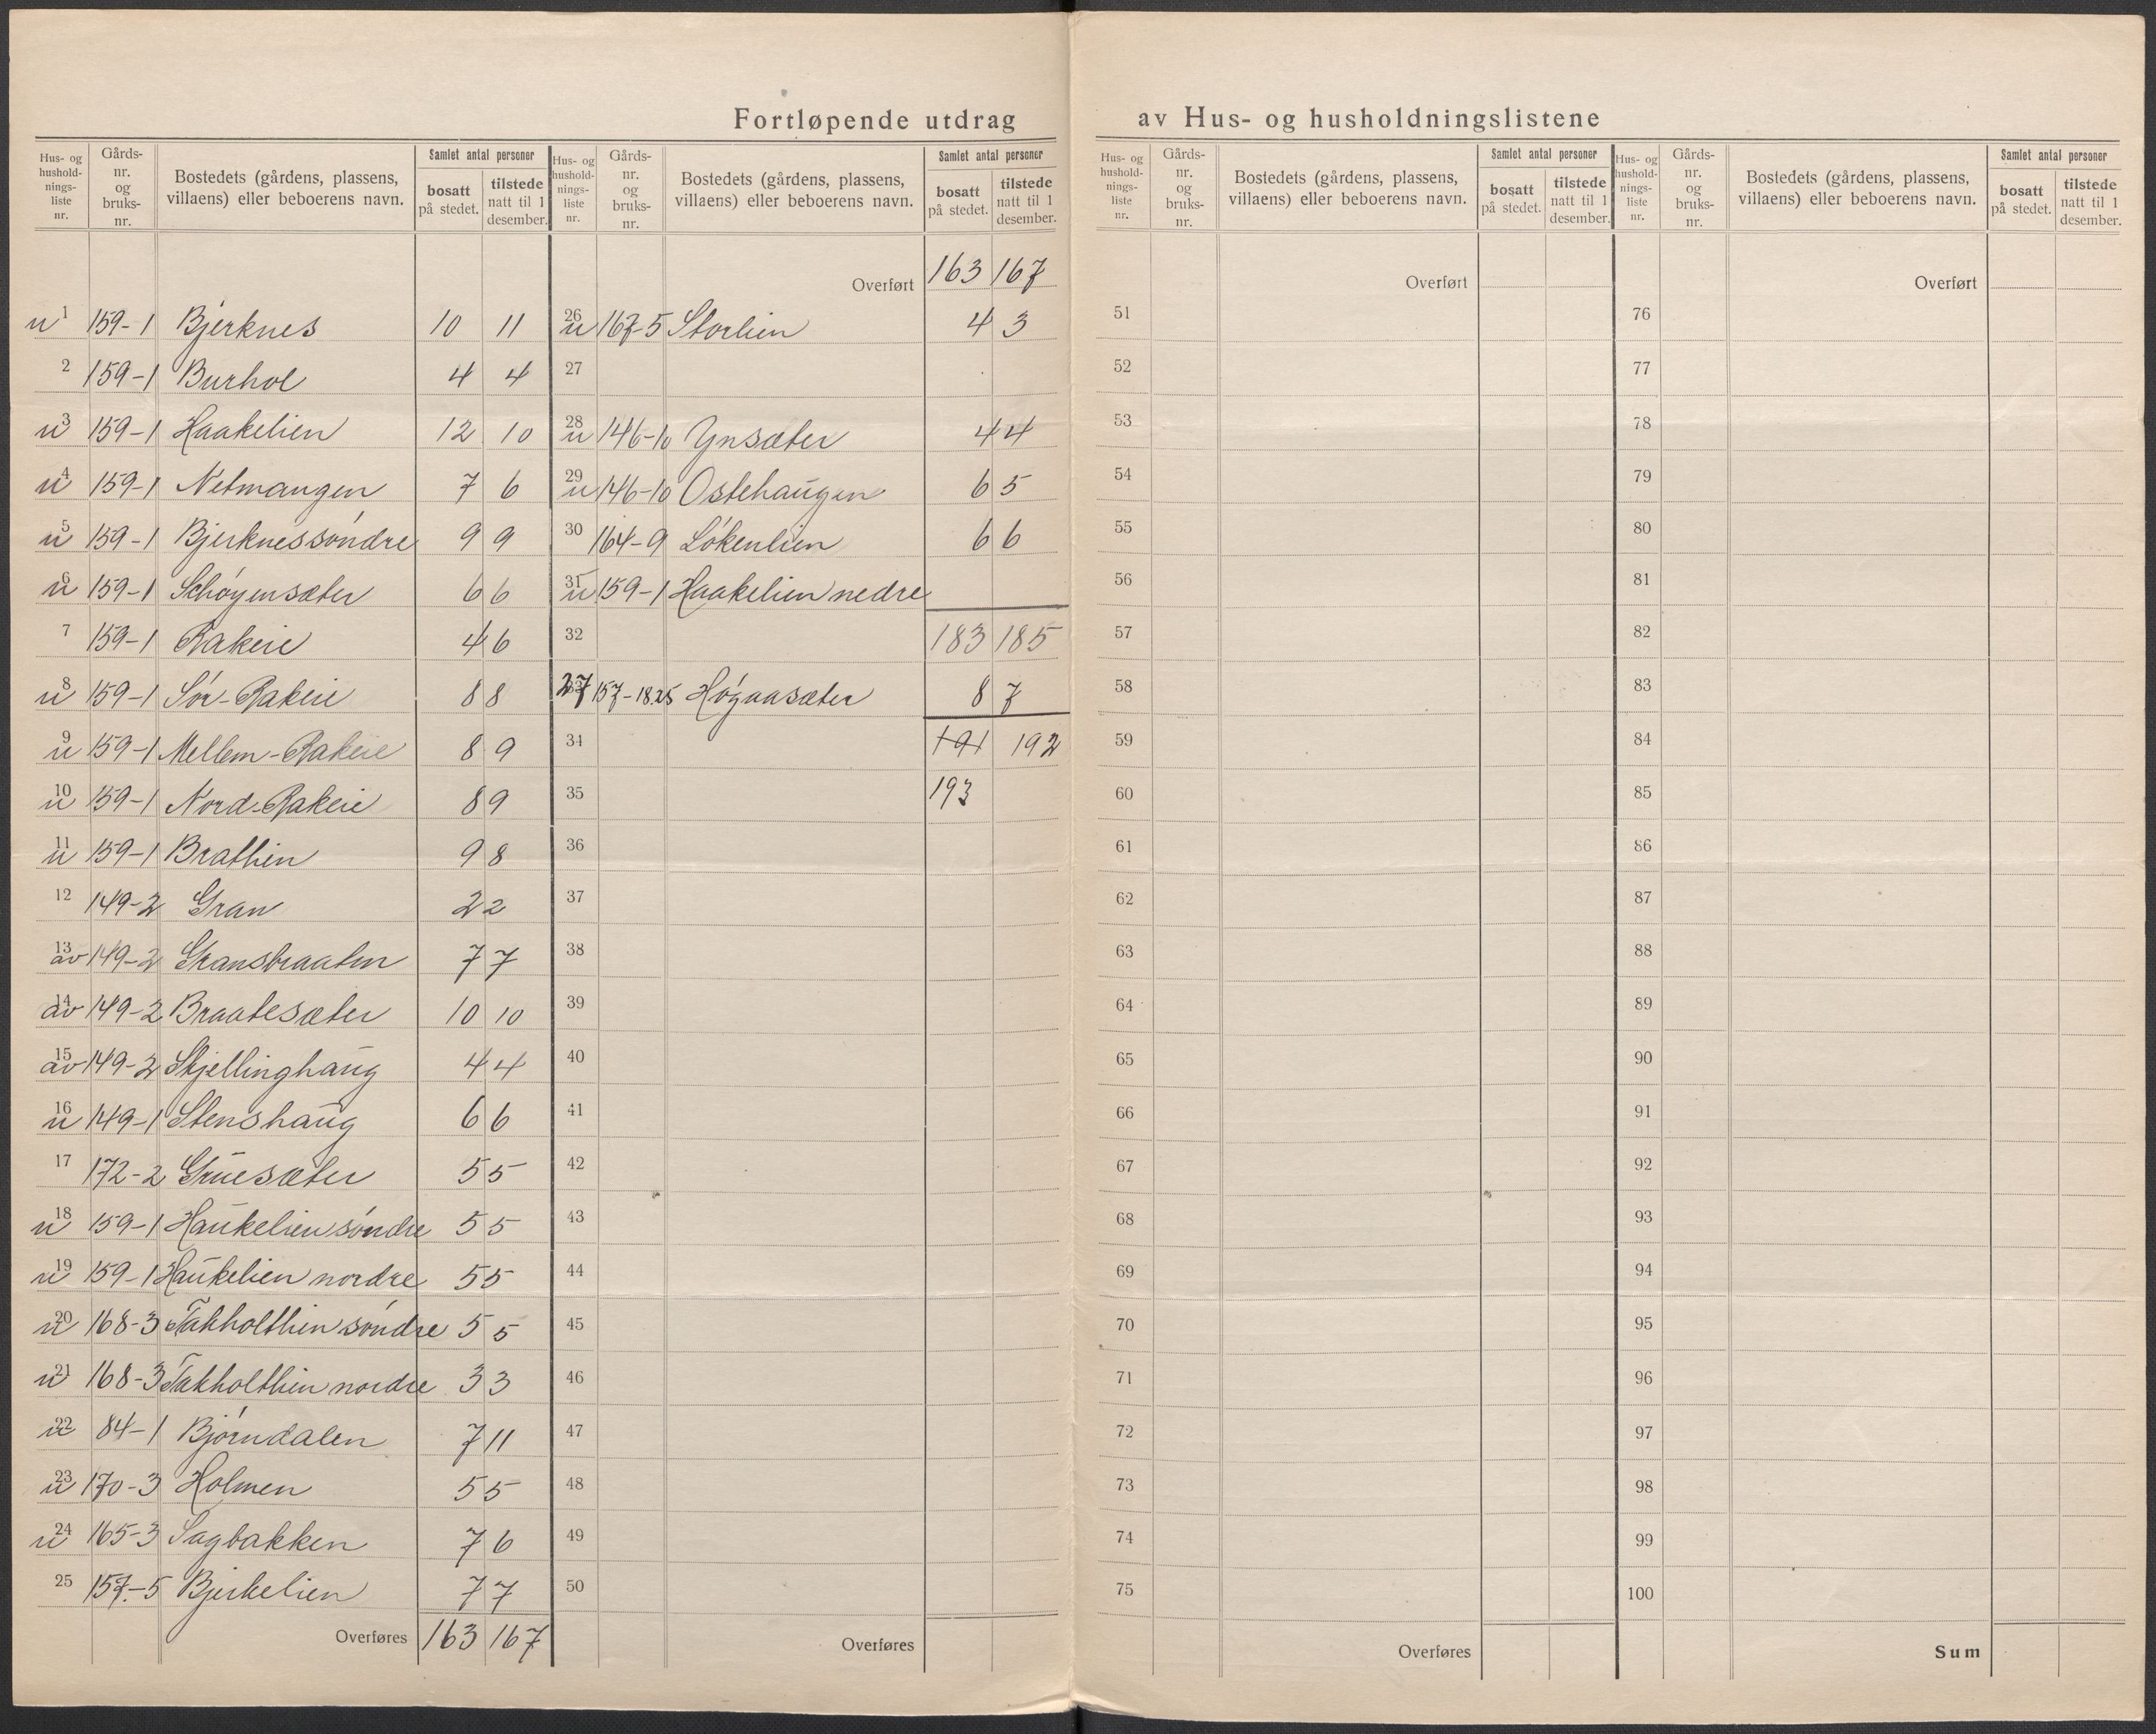 Fortløpende utdrag av Hus- og husholdningslistene
Hus- og hushold-nings-liste nr. Gårds-nr. og bruks-nr. Bostedets (gårdens, plassens, villaens) eller beboerens navn. Samlet antal personer bosatt på stedet. tilstede natt til 1 desember.
u 1 159-1 Bjerknes 10 11
2 159-1 Burhol 4 4
u 3 159-1 Haakelien 12 10
u 4 159-1 Netmangen 7 6
u 5 159-1 Bjerknes søndre 9 9
u 6 159-1 Schøyensæter 6 6
7 159-1 Rakeie 4 6
u 8 159-1 Sør-Rakeie 8 8
u 9 159-1 Mellem-Rakeie 8 9
u 10 159-1 Nord-Rakeie 8 9
u 11 159-1 Bratlien 9 8
12 149-2 Gran 2 2
av 13 149-2 Gransbraaten 7 7
av 14 149-2 Braatesæter 10 10
av 15 149-2 Skjellinghaug 4 4
u 16 149-1 Stenshaug 6 6
17 172-2 Gruesæter 5 5
u 18 159-1 Haukelien søndre 5 5
u 19 159-1 Haukelien nordre 5 5
u 20 168-3 Takholtlien søndre 5 5
u 21 168-3 Takholtlien nordre 3 3
u 22 84-1 Bjørndalen 7 11
u 23 170-3 Holmen 5 5
u 24 165-3 Sagbakken 7 6
25 157-5 Bjerkelien 7 7
Overføres 163 167
Hus- og hushold-nings-liste nr. Gårds-nr. og bruks-nr. Bostedets (gårdens, plassens, villaens) eller beboerens navn. Samlet antal personer bosatt på stedet. tilstede natt til 1 desember.
Overført 163 167
u 26 167-5 Storlien 4 3
27
u 28 146-10 Ynsæter 4 4
u 29 146-10 Ostehaugen 6 5
30 164-9 Løkenlien 6 6
u 31 159-1 Haakelien nedre
32 183 185
27 157-18.25 Høgaasæter 8 7
34 191 192
35 193
36
37
38
39
40
41
42
43
44
45
46
47
48
49
50
Overføres
Hus- og hushold-nings-liste nr. Gårds-nr. og bruks-nr. Bostedets (gårdens, plassens, villaens) eller beboerens navn. Samlet antal personer bosatt på stedet. tilstede natt til 1 desember.
Overført
51
52
53
54
55
56
57
58
59
60
61
62
63
64
65
66
67
68
69
70
71
72
73
74
75
Overføres
Hus- og hushold-nings-liste nr. Gårds-nr. og bruks-nr. Bostedets (gårdens, plassens, villaens) eller beboerens navn. Samlet antal personer bosatt på stedet. tilstede natt til 1 desember.
Overført
76
77
78
79
80
81
82
83
84
85
86
87
88
89
90
91
92
93
94
95
96
97
98
99
100
Sum